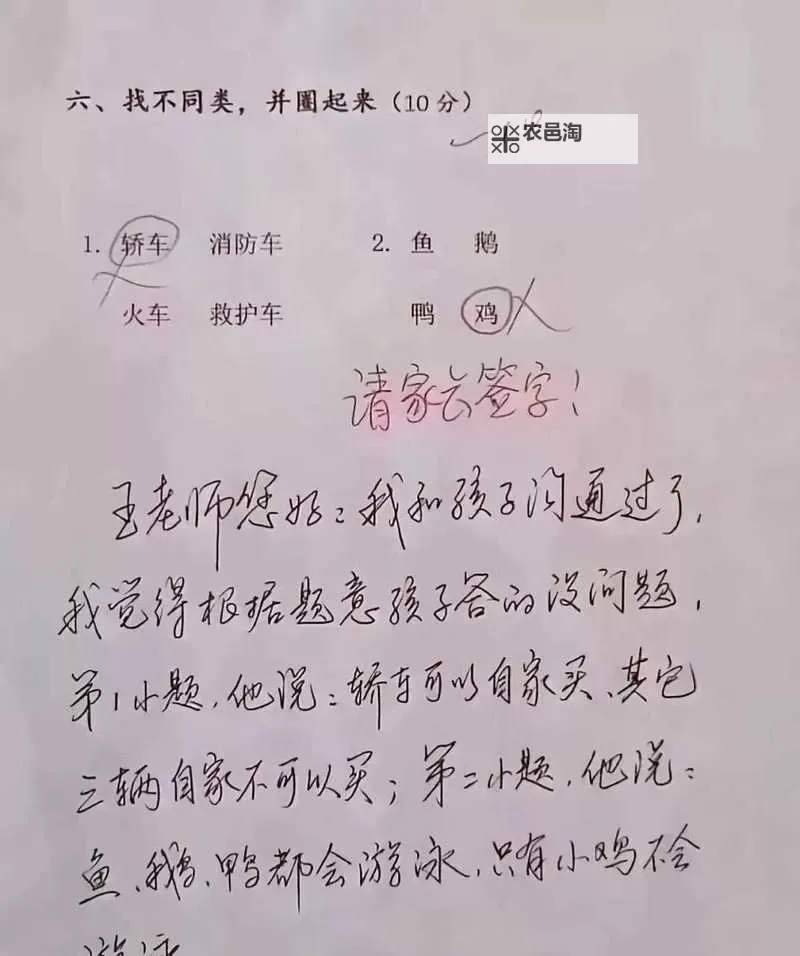 六、找不同类，并圈起来（10分）
农邑淘
1. 轿车 消防车 2. 鱼 鹅
火车 救护车 鸭 鸡
请家长签字！
王老师您好：我和孩子沟通过了，
我觉得根据题意孩子答的没问题，
第1小题，他说：轿车可以自家买、其它
三辆自家不可以买；第二小题，他说：
鱼、鹅、鸭都会游泳，只有小鸡不会